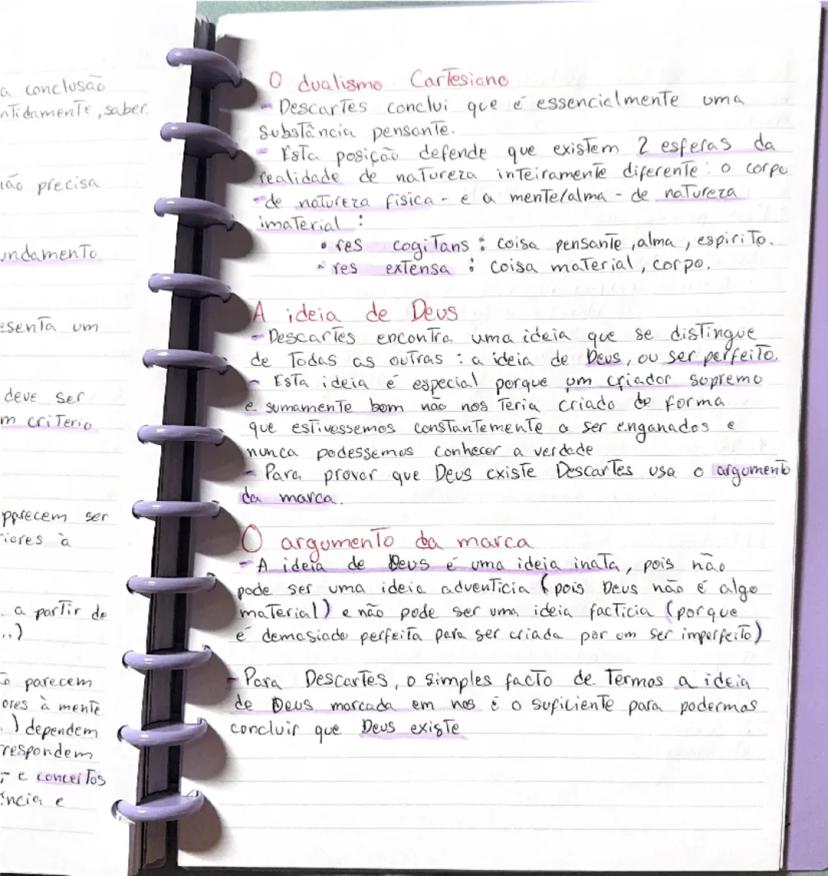 a conclusão
ntidamente, saber.
ão precisa
undamento
esenta um
deve ser
m criterio
pparecem ser
iores à
a partir de
..)
o parecem
ores à mente
.) dependem
respondem
r e conceitos
ência e
O dualismo Cartesiano
- Descartes conclui que é essencialmente uma
substância pensante.
- Esta posição defende que existem 2 esferas da
realidade de natureza inteiramente diferente: o corpo
- de natureza física - e a mente/alma - de natureza
imaterial:
• res cogitans: coisa pensante, alma, espirito.
• res extensa: coisa material, corpo.
A ideia de Deus
- Descartes encontra uma ideia que se distingue
de todas as outras: a ideia de Deus, ou ser perfeito.
- Esta ideia é especial porque um criador supremo
e sumamente bom não nos teria criado de forma
que estivessemos constantemente a ser enganados e
nunca podessemos conhecer a verdade
- Para provar que Deus existe Descartes usa o argumento
da marca.
O argumento da marca
- A ideia de Deus é uma ideia inata, pois não
pode ser uma ideia adventicia (pois Deus não é algo
material) e não pode ser uma ideia facticia (porque
é demasiado perfeita para ser criada por um ser imperfeito)
- Para Descartes, o simples facto de termos a ideia
de Deus marcada em nos é o suficiente para podermos
concluir que Deus existe